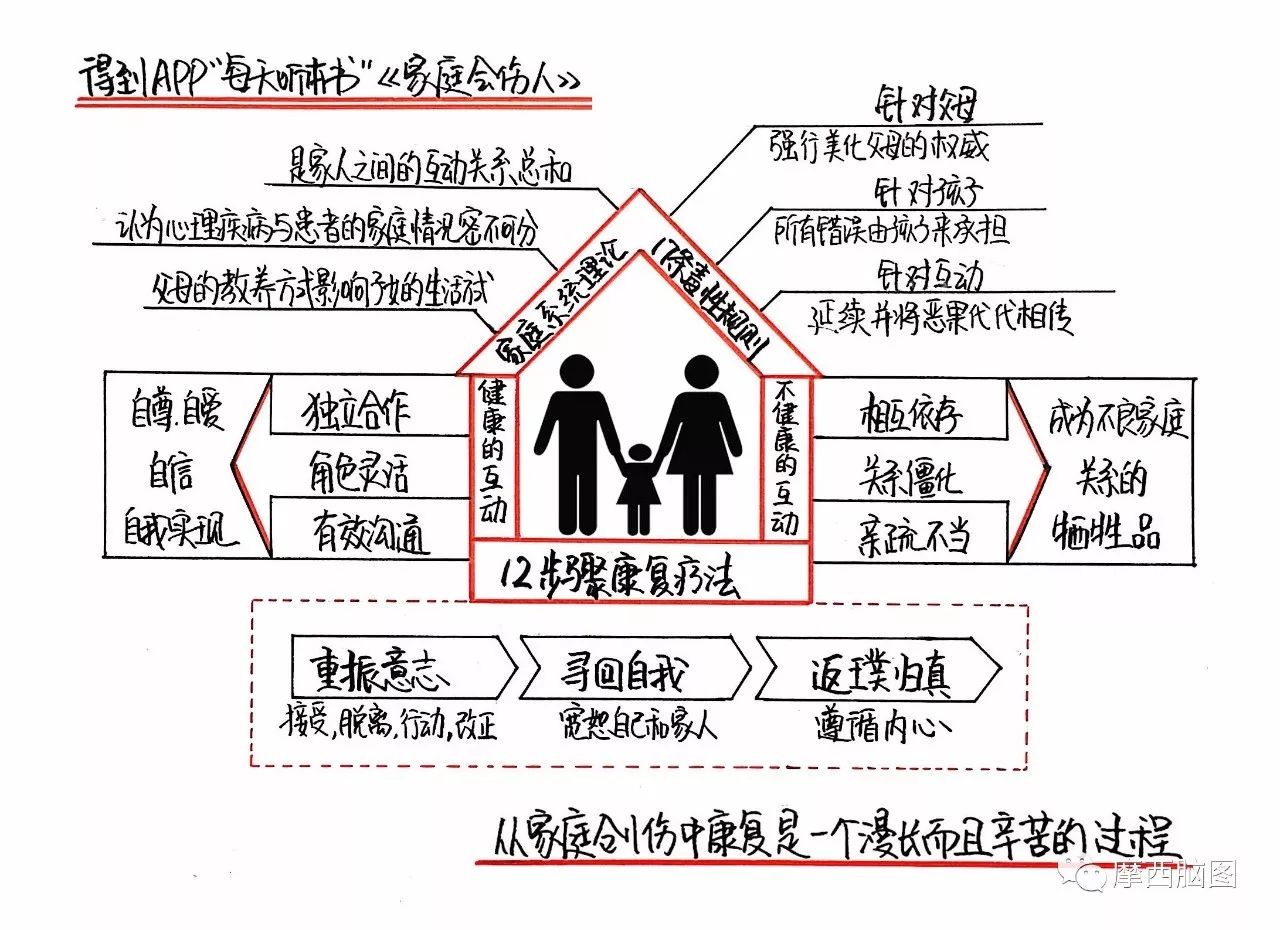 得到APP"每天听本书"《家庭会伤人》
是家人之间的互动关系总和
认为心理疾病与患者的家庭情况密不可分
父母的教养方式影响子女的生活式
家庭系统理论
17条毒性规则
针对父母
强行美化父母的权威
针对孩子
所有错误由孩子来承担
针对互动
延续并将恶果代代相传
自尊.自爱
自信
自我实现
独立合作
角色灵活
有效沟通
健康的互动
不健康的互动
相互依存
关系僵化
亲疏不当
成为不良家庭
关系的
牺牲品
12步骤康复疗法
重振意志
接受,脱离,行动,改正
寻回自我
宽恕自己和家人
返璞归真
遵循内心
从家庭创伤中康复是一个漫长而且辛苦的过程
摩西脑图